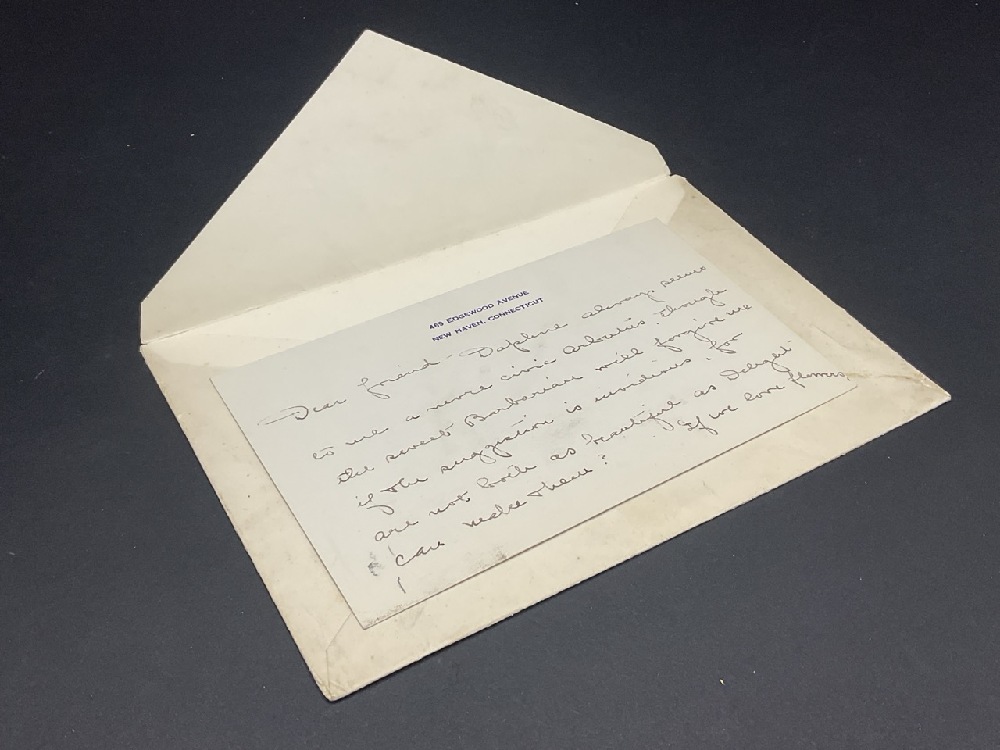 465 EDGEWOOD AVENUE
NEW HAVEN, CONNECTICUT
Dear friend - Daphne always seems
to me a more civic Arbutus, though
the sweet Barbarian will forgive me
if the suggestion is invidious. For
are not both as beautiful as Delight
can make them? If we love flowers,